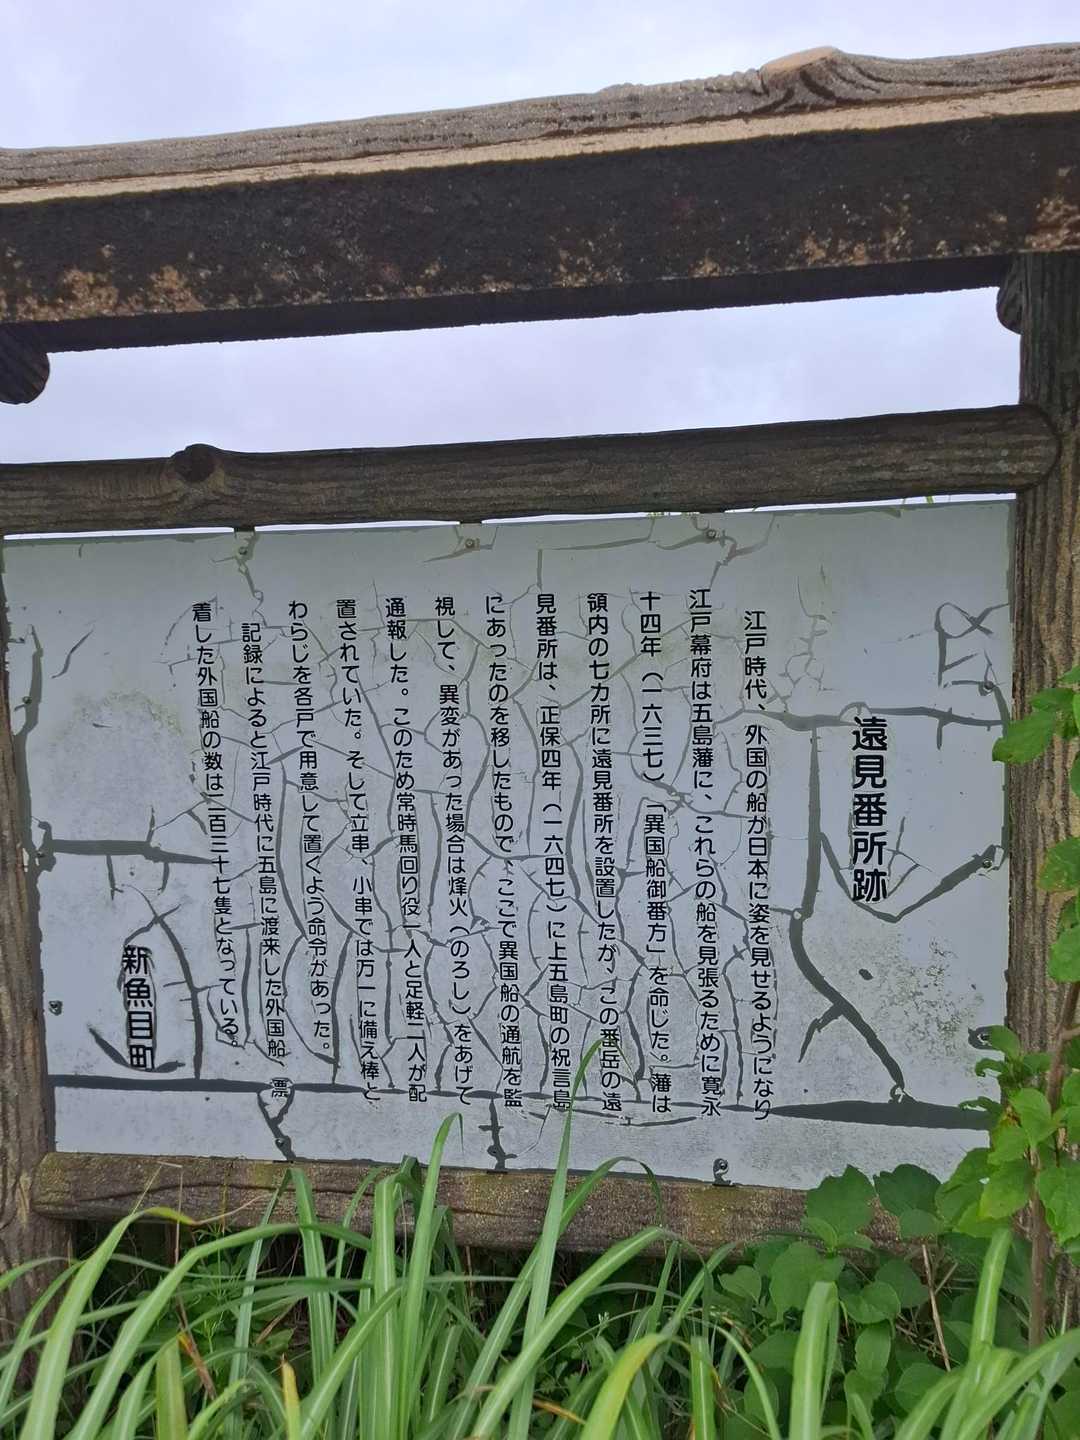 遠見番所跡
江戸時代、外国の船が日本に姿を見せるようになり
江戸幕府は五島藩に、これらの船を見張るために寛永
十四年（一六三七）「異国船御番方」を命じた。藩は
領内の七カ所に遠見番所を設置したが、この番岳の遠
見番所は、正保四年（一六四七）に上五島町の祝言島
にあったのを移したもので、ここで異国船の通航を監
視して、異変があった場合は烽火（のろし）をあげて
通報した。このため常時馬回り役一人と足軽二人が配
置されていた。そして立串、小串では万一に備え棒と
わらじを各戸で用意して置くよう命令があった。
記録によると江戸時代に五島に渡来した外国船、漂
着した外国船の数は二百三十七隻となっている。
新魚目町